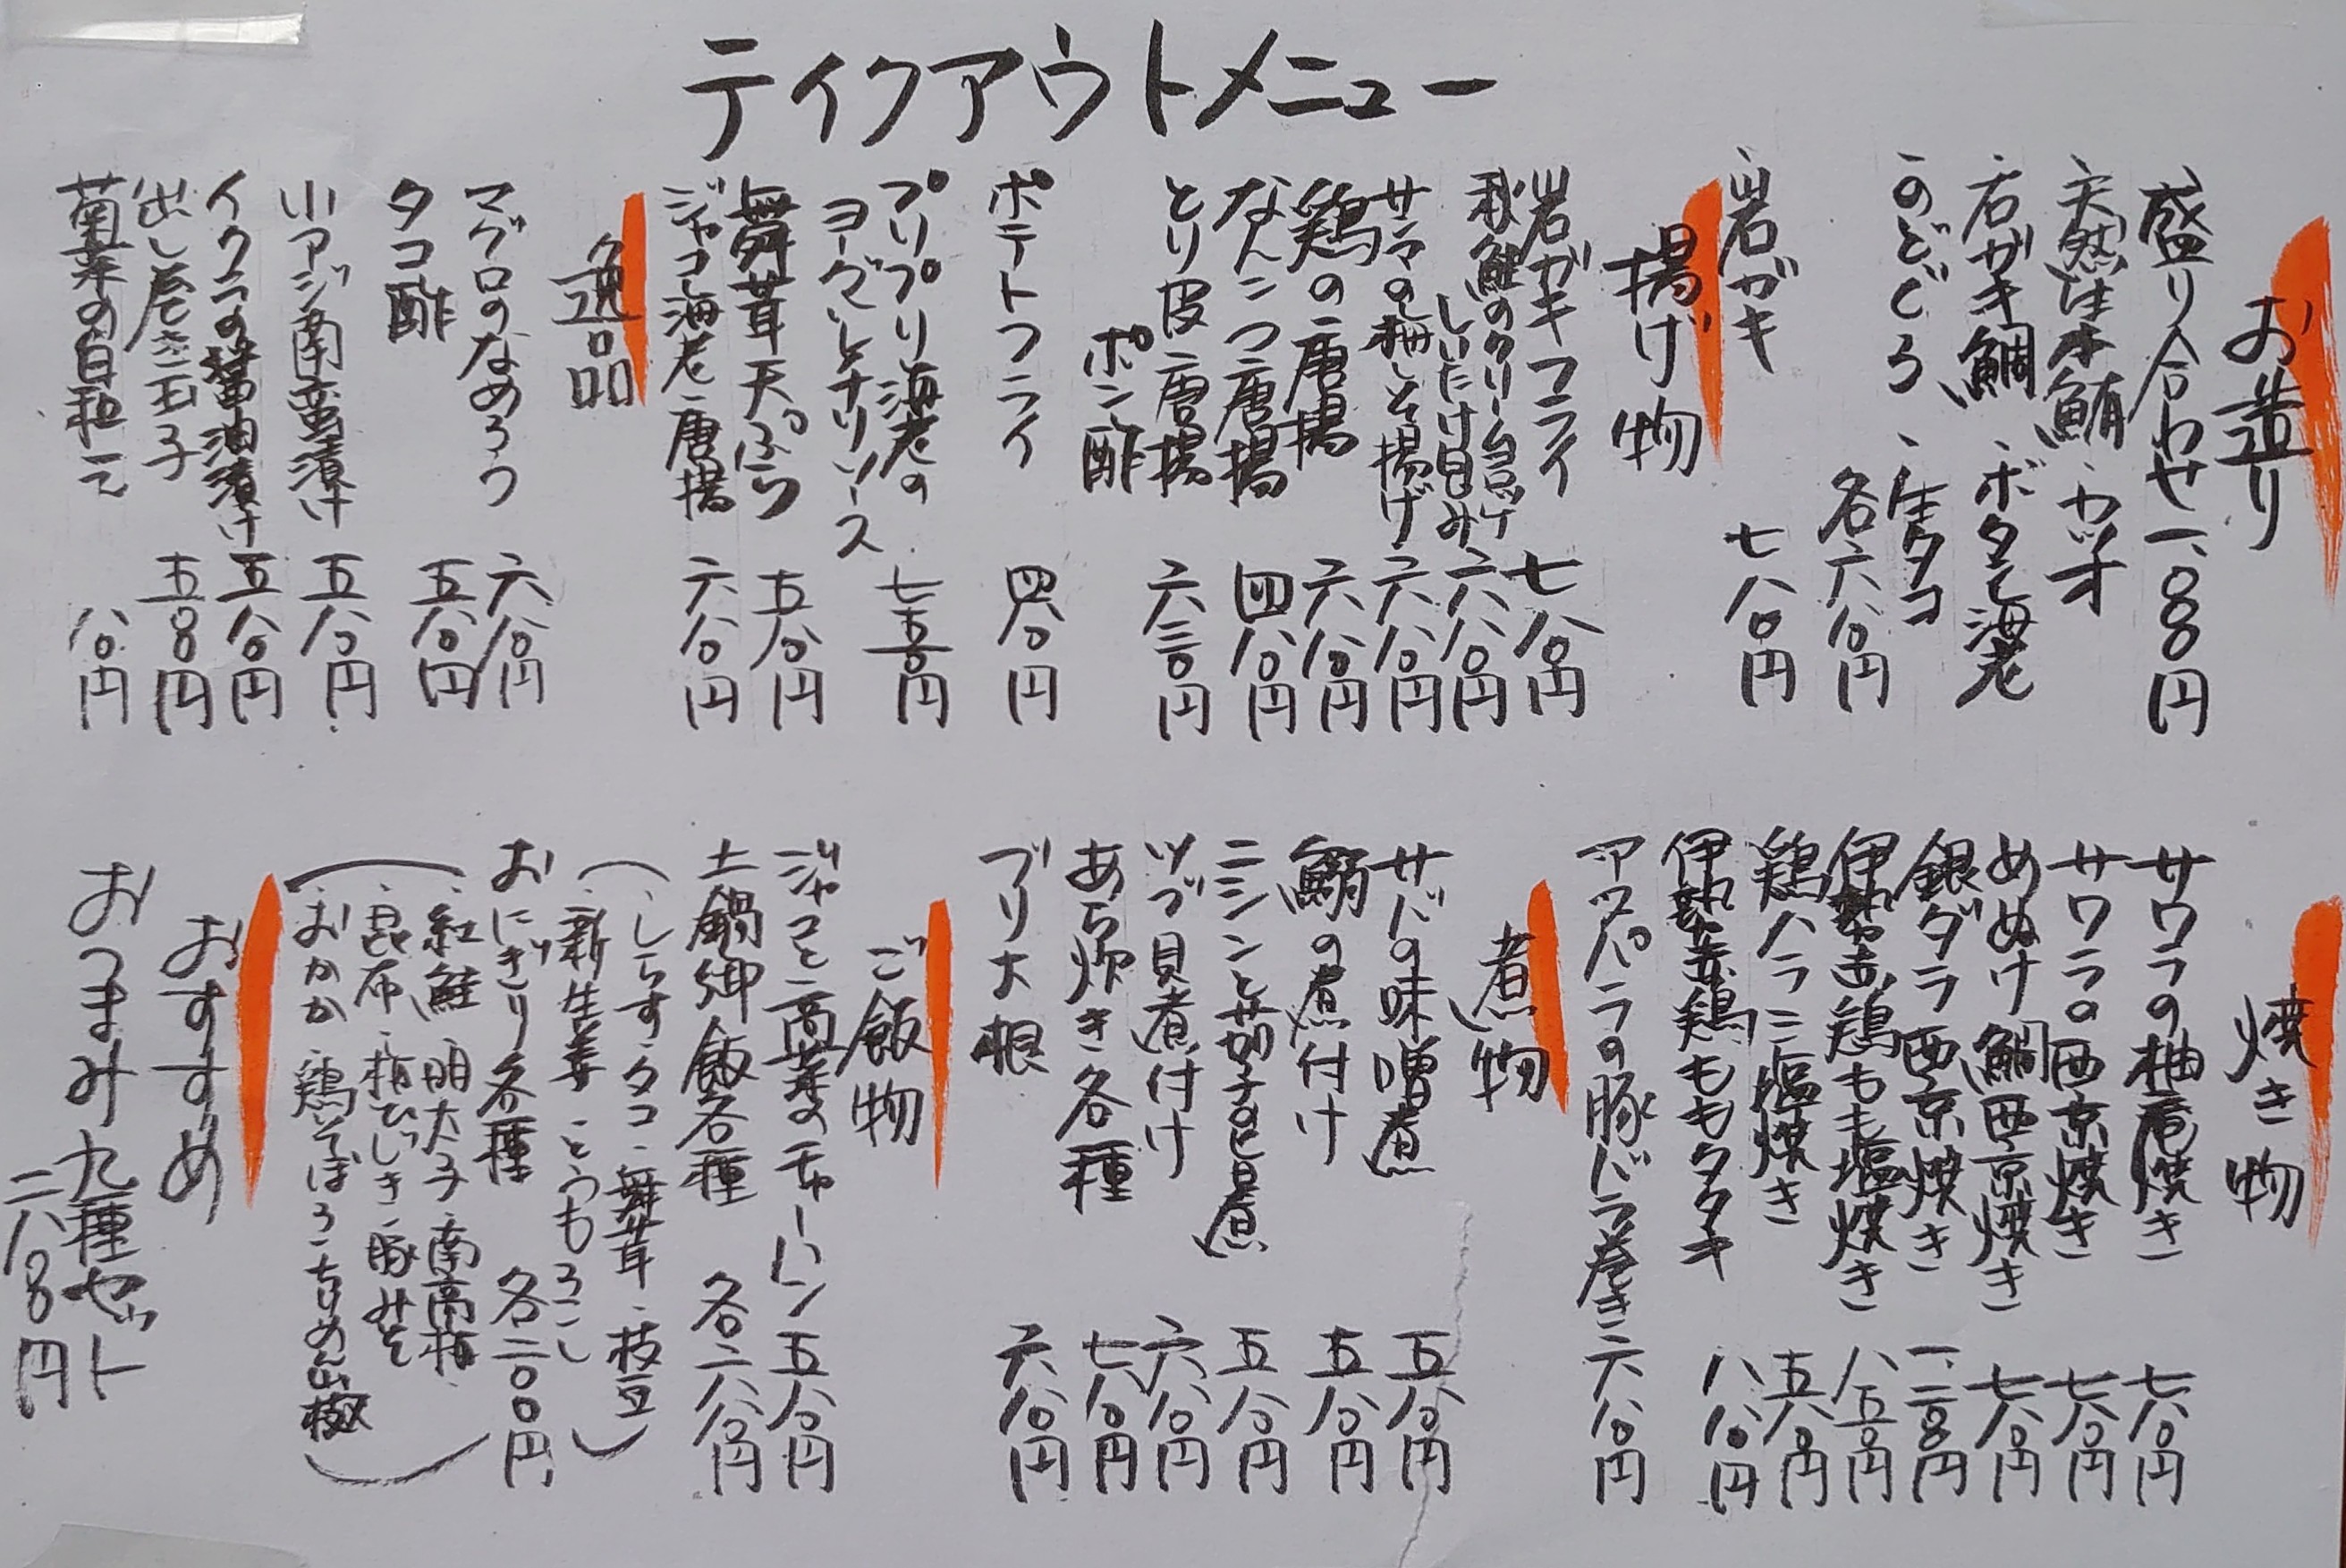 テイクアウトメニュー
お造り
盛り合わせ 一、八〇〇円
・天然生本鮪 ・カツオ
・石ガキ鯛 ・ボタン海老
・のどぐろ ・生タコ
各六八〇円
・岩ガキ 七八〇円
揚げ物
岩ガキフライ 七八〇円
秋鮭のクリームコロッケ
しいたけ包み 六八〇円
サンマの梅しそ揚げ 六八〇円
鶏の唐揚 六八〇円
なんこつ唐揚 四八〇円
とり皮唐揚 六三〇円
ポン酢
ポテトフライ 四八〇円
プリプリ海老の
ヨーグルトチリソース 七五〇円
舞茸天ぷら 五八〇円
ジャコ海老唐揚 六八〇円
逸品
マグロのなめろう 六八〇円
タコ酢 五八〇円
小アジ南蛮漬け 五八〇円
イクラの醤油漬け 五八〇円
出し巻き玉子 五〇〇円
菊菜の白和え 八〇円
焼き物
サワラの柚庵焼き 七八〇円
サワラの西京焼き 七八〇円
めぬけ鯛西京焼き 七八〇円
銀ダラ西京焼き 一、二〇〇円
伊勢赤鶏もも塩焼き 八五〇円
鶏ハラミ塩焼き 五八〇円
伊勢赤鶏ももタタキ 八八〇円
アスパラの豚バラ巻き 六八〇円
煮物
サバの味噌煮 五八〇円
鰯の煮付け 五八〇円
ニシンと茄子の旨煮 五八〇円
ツブ貝煮付け 六八〇円
あら炊き各種 七八〇円
ブリ大根 六八〇円
ご飯物
ジャコと高菜のチャーハン 五八〇円
土鍋御飯各種 各六八〇円
(・しらす・タコ・舞茸・枝豆
・新生姜・とうもろこし)
おにぎり各種 各二〇〇円
(・紅鮭・明太子・南高梅
・昆布・梅ひじき・豚みそ
・おかか・鶏そぼろ・ちりめん山椒)
おすすめ
おつまみ九種セット
二八〇〇円